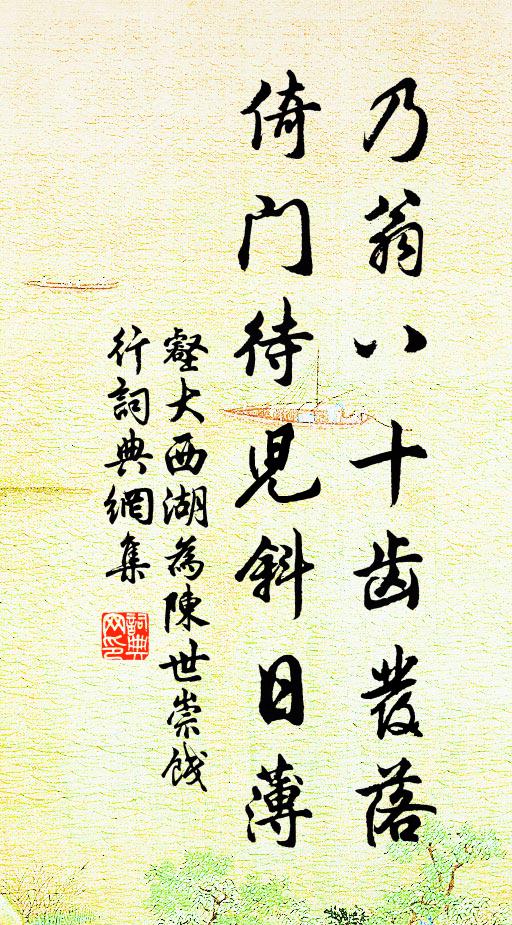 乃翁八十齿发落
倚门待儿斜日薄
壑大西湖为陈世崇饯
行词典網集
詞典
网印